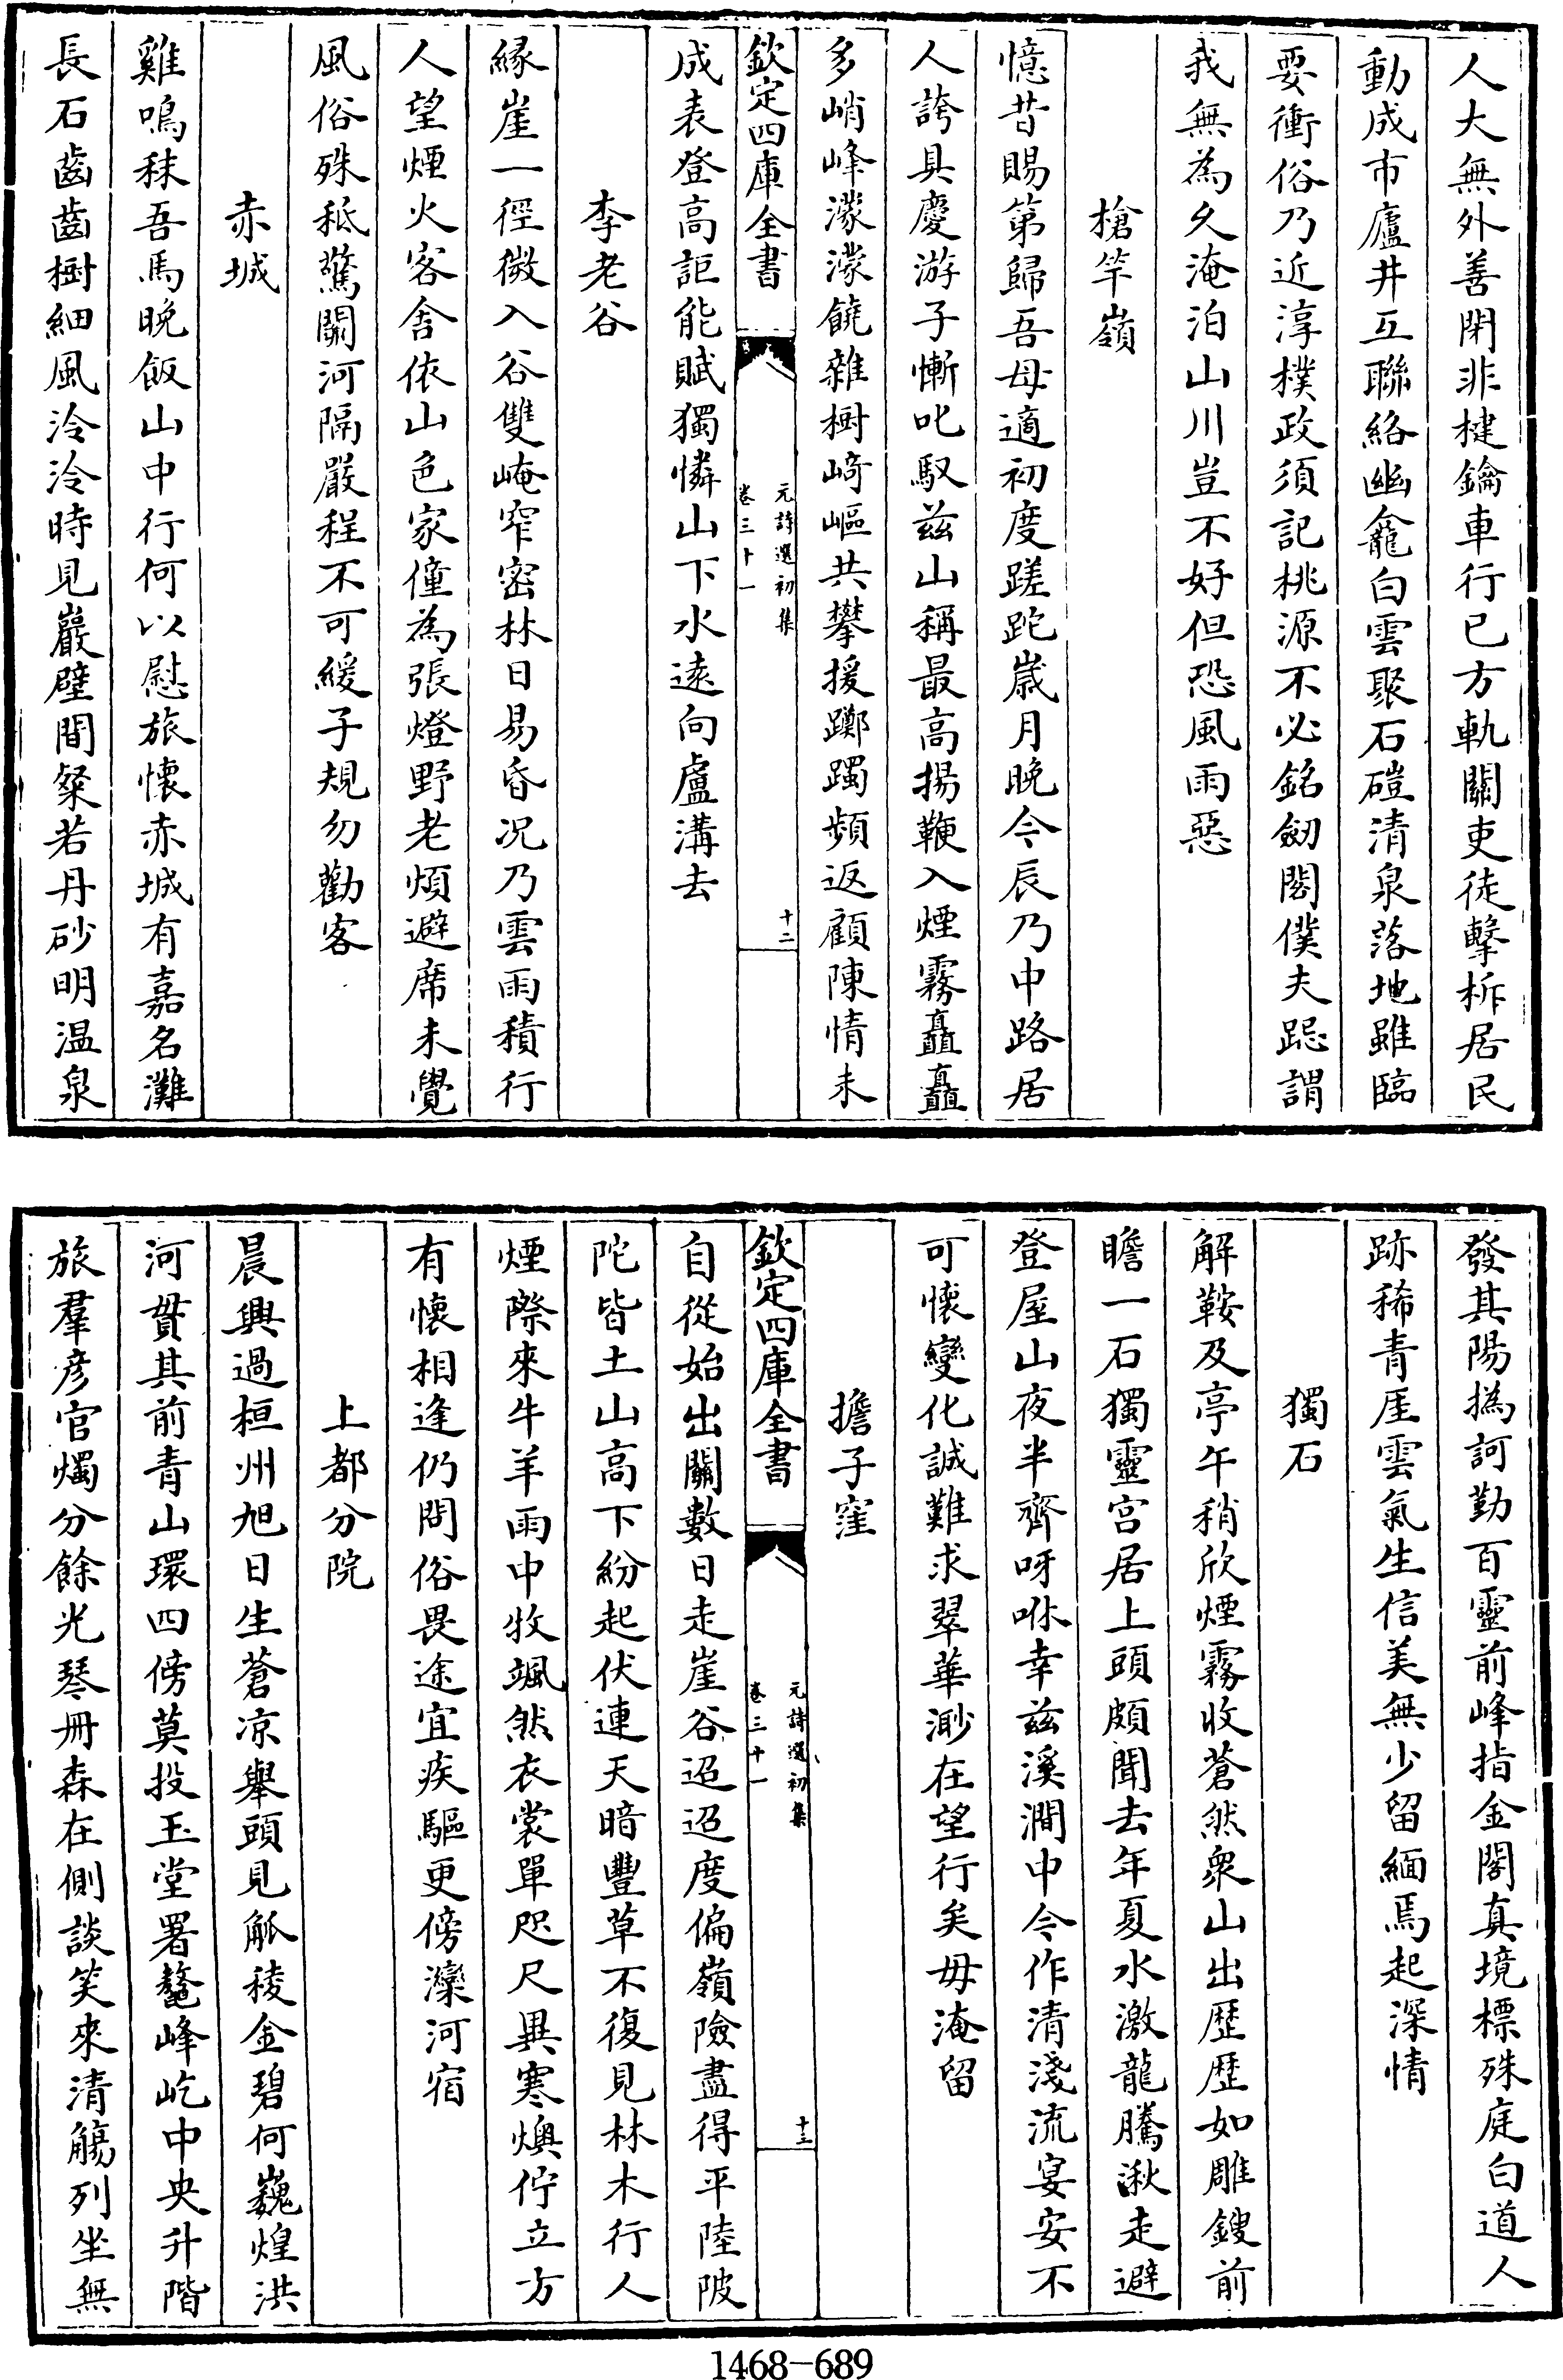 人大無外善閉非楗鑰車行已方軌關吏徒擊柝居民
動成市廬井互聯絡幽龕白雲聚石磴清泉落地雖臨
要衝俗乃近淳樸政須記桃源不必銘劒閣僕夫跽謂
我無為久淹泊山川豈不好但恐風雨惡
槍竿嶺
憶昔賜第歸吾母適初度蹉跎嵗月晚今辰乃中路居
人誇具慶游子慚叱馭兹山稱最高揚鞭入煙霧矗矗
多峭峰濛濛饒雜樹﨑嶇共攀援躑躅頻返顧陳情未
欽定四庫全書
元詩選初集
卷三十一
十二
成表登高詎能賦獨憐山下水遠向盧溝去
李老谷
緣崖一徑微入谷雙崦窄密林日易昏况乃雲雨積行
人望煙火客舍依山色家僮為張燈野老煩避席未覺
風俗殊秪驚關河隔嚴程不可緩子規勿勸客
赤城
雞鳴秣吾馬晚飯山中行何以慰旅懷赤城有嘉名灘
長石齒齒樹細風泠泠時見巖壁間粲若丹砂明温泉
發其陽撝訶勤百靈前峰指金閣真境標殊庭白道人
跡稀青厓雲氣生信美無少留緬焉起深情
獨石
解鞍及亭午稍欣煙霧收蒼然衆山出歴歴如雕鎪前
瞻一石獨靈宫居上頭頗聞去年夏水激龍騰湫走避
登屋山夜半齊呀咻幸兹溪澗中今作清淺流宴安不
可懷變化誠難求翠華渺在望行矣毋淹留
擔子窪
欽定四庫全書
元詩選初集
卷三十一
十三
自從始出關數日走崖谷迢迢度偏嶺險盡得平陸陂
陀皆土山高下紛起伏連天暗豐草不復見林木行人
煙際來牛羊雨中牧颯然衣裳單咫尺異寒燠佇立方
有懷相逢仍問俗畏途宜疾驅更傍灤河宿
上都分院
晨興過桓州旭日生蒼凉舉頭見觚稜金碧何巍煌洪
河貫其前青山環四傍莫投玉堂署鼇峰屹中央升階
旅羣彦官燭分餘光琴冊森在側談笑來清觴列坐無
1468-689